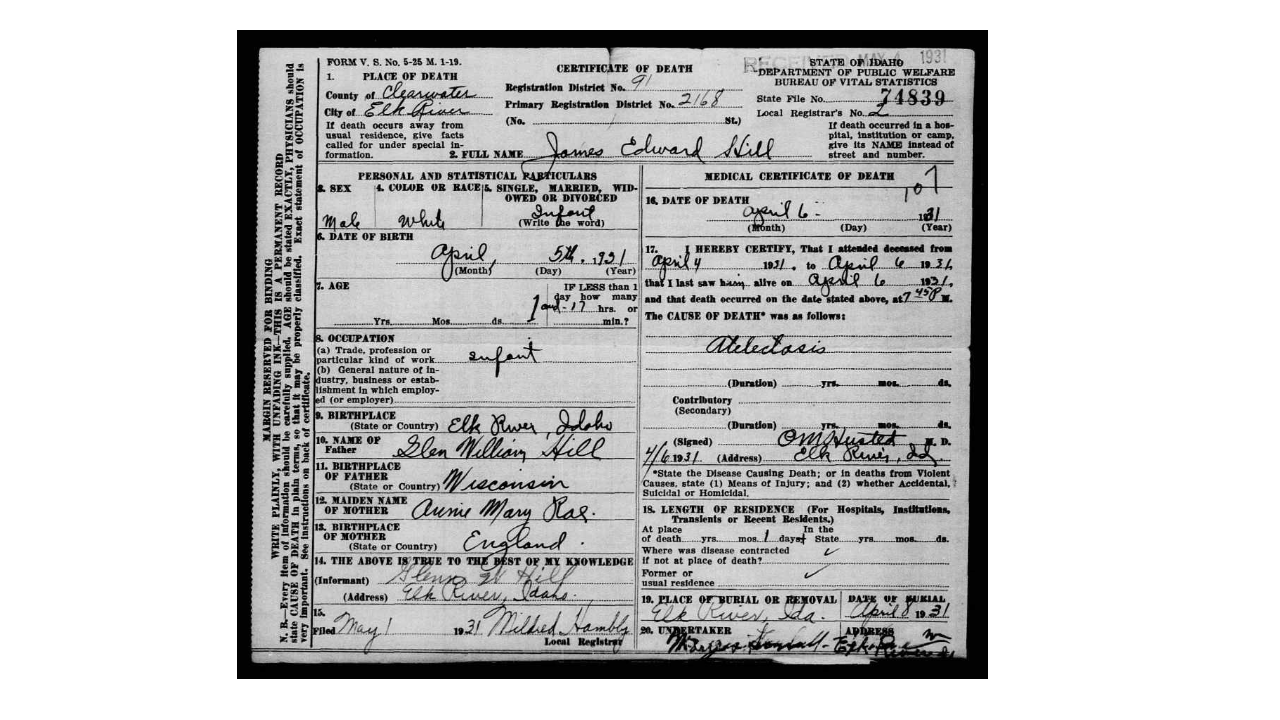 MARGIN RESERVED FOR BINDING
WRITE PLAINLY, WITH UNFADING INK—THIS IS A PERMANENT RECORD
N. B.—Every item of information should be carefully supplied. AGE should be stated EXACTLY, PHYSICIANS should
state CAUSE OF DEATH in plain terms, so that it may be properly classified. Exact statement of OCCUPATION is
very important. See instructions on back of certificate.
FORM V. S. No. 5-25 M. 1-19.
CERTIFICATE OF DEATH
RECEIVED MAY 4 1931
STATE OF IDAHO
DEPARTMENT OF PUBLIC WELFARE
BUREAU OF VITAL STATISTICS
1. PLACE OF DEATH
County of Clearwater
City of Elk River
If death occurs away from
usual residence, give facts
called for under special in-
formation.
Registration District No. 91
Primary Registration District No. 2168
(No. St.)
State File No. 74839
Local Registrar's No. 2
If death occurred in a hos-
pital, institution or camp,
give its NAME instead of
street and number.
2. FULL NAME James Edward Hill
PERSONAL AND STATISTICAL PARTICULARS
3. SEX
Male
4. COLOR OR RACE
White
5. SINGLE, MARRIED, WID-
OWED OR DIVORCED
Infant
(Write the word)
6. DATE OF BIRTH
April, 5th, 1931
(Month) (Day) (Year)
7. AGE
IF LESS than 1
day how many
1 and 17 hrs. or
Yrs. Mos. ds. min.?
8. OCCUPATION
(a) Trade, profession or
particular kind of work infant
(b) General nature of in-
dustry, business or estab-
lishment in which employ-
ed (or employer)
9. BIRTHPLACE
(State or Country) Elk River, Idaho
10. NAME OF
Father Glen William Hill
11. BIRTHPLACE
OF FATHER
(State or Country) Wisconsin
12. MAIDEN NAME
OF MOTHER Annie Mary Rae.
13. BIRTHPLACE
OF MOTHER
(State or Country) England.
14. THE ABOVE IS TRUE TO THE BEST OF MY KNOWLEDGE
(Informant) Glenn W Hill
(Address) Elk River, Idaho.
15.
Filed May 1 1931 Mildred Hambly
Local Registrar
MEDICAL CERTIFICATE OF DEATH
107
16. DATE OF DEATH
April 6 - 1931
(Month) (Day) (Year)
17. I HEREBY CERTIFY, That I attended deceased from
April 4 1931, to April 6 1931,
that I last saw him alive on April 6 1931,
and that death occurred on the date stated above, at 7 45P M.
The CAUSE OF DEATH* was as follows:
Atelectasis
(Duration) yrs. mos. ds.
Contributory
(Secondary)
(Duration) yrs. mos. ds.
(Signed) O M Husted M. D.
4/6 1931 (Address) Elk River, Id.
*State the Disease Causing Death; or in deaths from Violent
Causes, state (1) Means of Injury; and (2) whether Accidental,
Suicidal or Homicidal.
18. LENGTH OF RESIDENCE (For Hospitals, Institutions,
Transients or Recent Residents.)
At place In the
of death yrs. mos. 1 days State yrs. mos. ds.
Where was disease contracted
if not at place of death?
Former or
usual residence
19. PLACE OF BURIAL OR REMOVAL
Elk River, Ida.
DATE OF BURIAL
April 8 1931
20. UNDERTAKER
ADDRESS